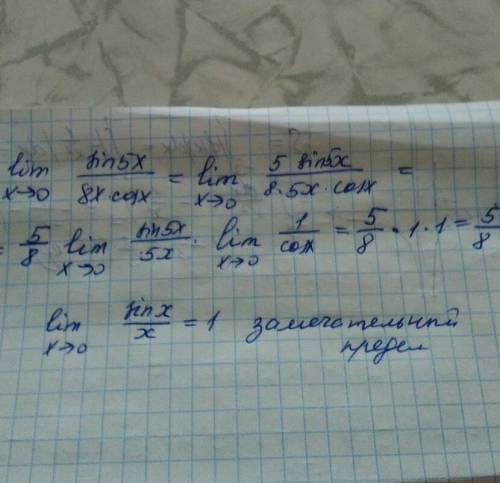 lim x→0 sin5x / 8x·cosx = lim x→0 5 sin5x / 8·5x·cosx =
= 5/8 lim x→0 sin5x / 5x · lim x→0 1 / cosx = 5/8 · 1 · 1 = 5/8
lim x→0 sin x / x = 1 замечательный
предел